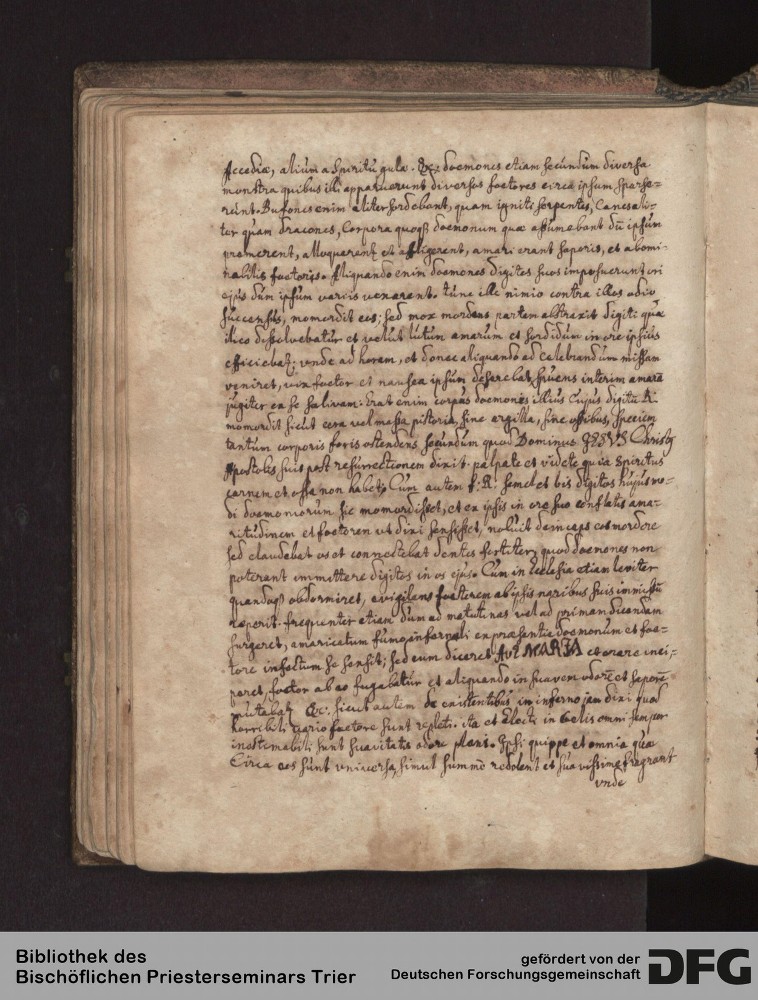 Accediæ, alium a Spiritu gulæ. &c: dæmones etiam secundum diversa
monstra quibus illi apparuerunt diversos fœtores circa ipsum sparse=
runt. Bufones enim aliter sordebant, quam igniti serpentes, Canes ali=
ter quam dracones, Corpora quoqȝ dæmonum quæ assumebant dū ipsum
premerent, alloquerent et affligerent, amari erant saporis, et abomi=
nabilis fœtoris. Aliquando enim dæmones digitos suos imposuerunt ori
ejus dum ipsum variis venarent. tunc ille nimio contra illos odio
succensus, momordit eos; sed mox mordens partem abstraxit digiti quæ
illico dissolvebatur et velut lutum amarum et sordidum in ore ipsius
efficiebat; unde ad horam, et donec aliquando ad celebrandum missam
veniret, vix fœtor et nausea ipsum deserebat, spuens interim amarā
jugiter ex se salivam. Erat enim corpus dæmonis illius Cujus digitū
momordit sicut cera vel massa pistoria, sine argilla, sine ossibus, speciem
tantum corporis foris ostendens secundum quod Dominus JESUS Christus
Apostolis suis post resurrectionem dixit. palpate et videte quia Spiritus
carnem et ossa non habet. Cum autem f: R. semel et bis digitos hujusmo=
di dæmoniorum sic momordisset, et ex ipsis in ore suo conflatis ama=
ritudinem et fœtorem ut dixi sensisset, noluit deinceps eos mordere
sed claudebat os et connectebat dentes fortiter, quod dæmones non
poterant immittere digitos in os ejus. Cum in Ecclesia etiam leviter
quandoqȝ obdormiret, evigilans fœtorem ab ipsis naribus suis immissū
reperit. frequenter etiam dum ad matutinas vel ad primam dicendam
surgeret, amaricatum fumo infernali ex præsentia dæmonum et fœ=
tore infectum se sensit; sed cum diceret AVE MARIA et orare inci=
peret, fœtor ab eo fugabatur et aliquando in suavem odorē et saporē
mutabat. &c: sicut autem de existentibus in inferno jam dixi quod
horribili vario fœtore sunt repleti. ita et Electi in Cœlis omni semper
inæstimabili sunt suavitatis odore pleni. Ipsi quippe et omnia quæ
Circa eos sunt universa, simul summe redolent et suavissime fragrant
unde
Bibliothek des
Bischöflichen Priesterseminars Trier
gefördert von der
Deutschen Forschungsgemeinschaft
DFG